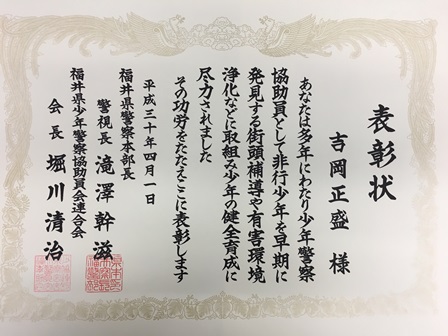 表彰状
吉岡正盛 様
あなたは多年にわたり少年警察
協助員として非行少年を早期に
発見する街頭補導や有害環境
浄化などに取組み少年の健全育成に
尽力されました
その功労をたたえここに表彰します
平成三十年四月一日
福井県警察本部長
警視長 滝澤幹滋
福井県少年警察協助員会連合会
会長 堀川清治